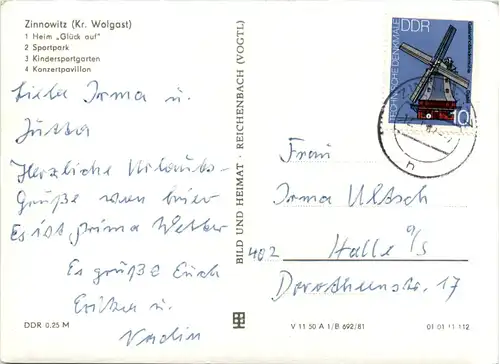 Zinnowitz (Kr. Wolgast)
1 Heim „Glück auf"
2 Sportpark
3 Kindersportgarten
4 Konzertpavillon
Liebe Irma u.
Jutta
Herzliche Urlaubs-
Grüße von hier
Es ist prima Wetter
Es grüßt Euch
Erika u.
Nadin
DDR 0.25 M
BILD UND HEIMAT · REICHENBACH (VOGTL)
TECHNISCHE DENKMALE
DDR
10
Frau
Irma
402 Halle a/S
Dorotheenstr. 17
V 11 50 A 1/B 692/81
01 01 11 112